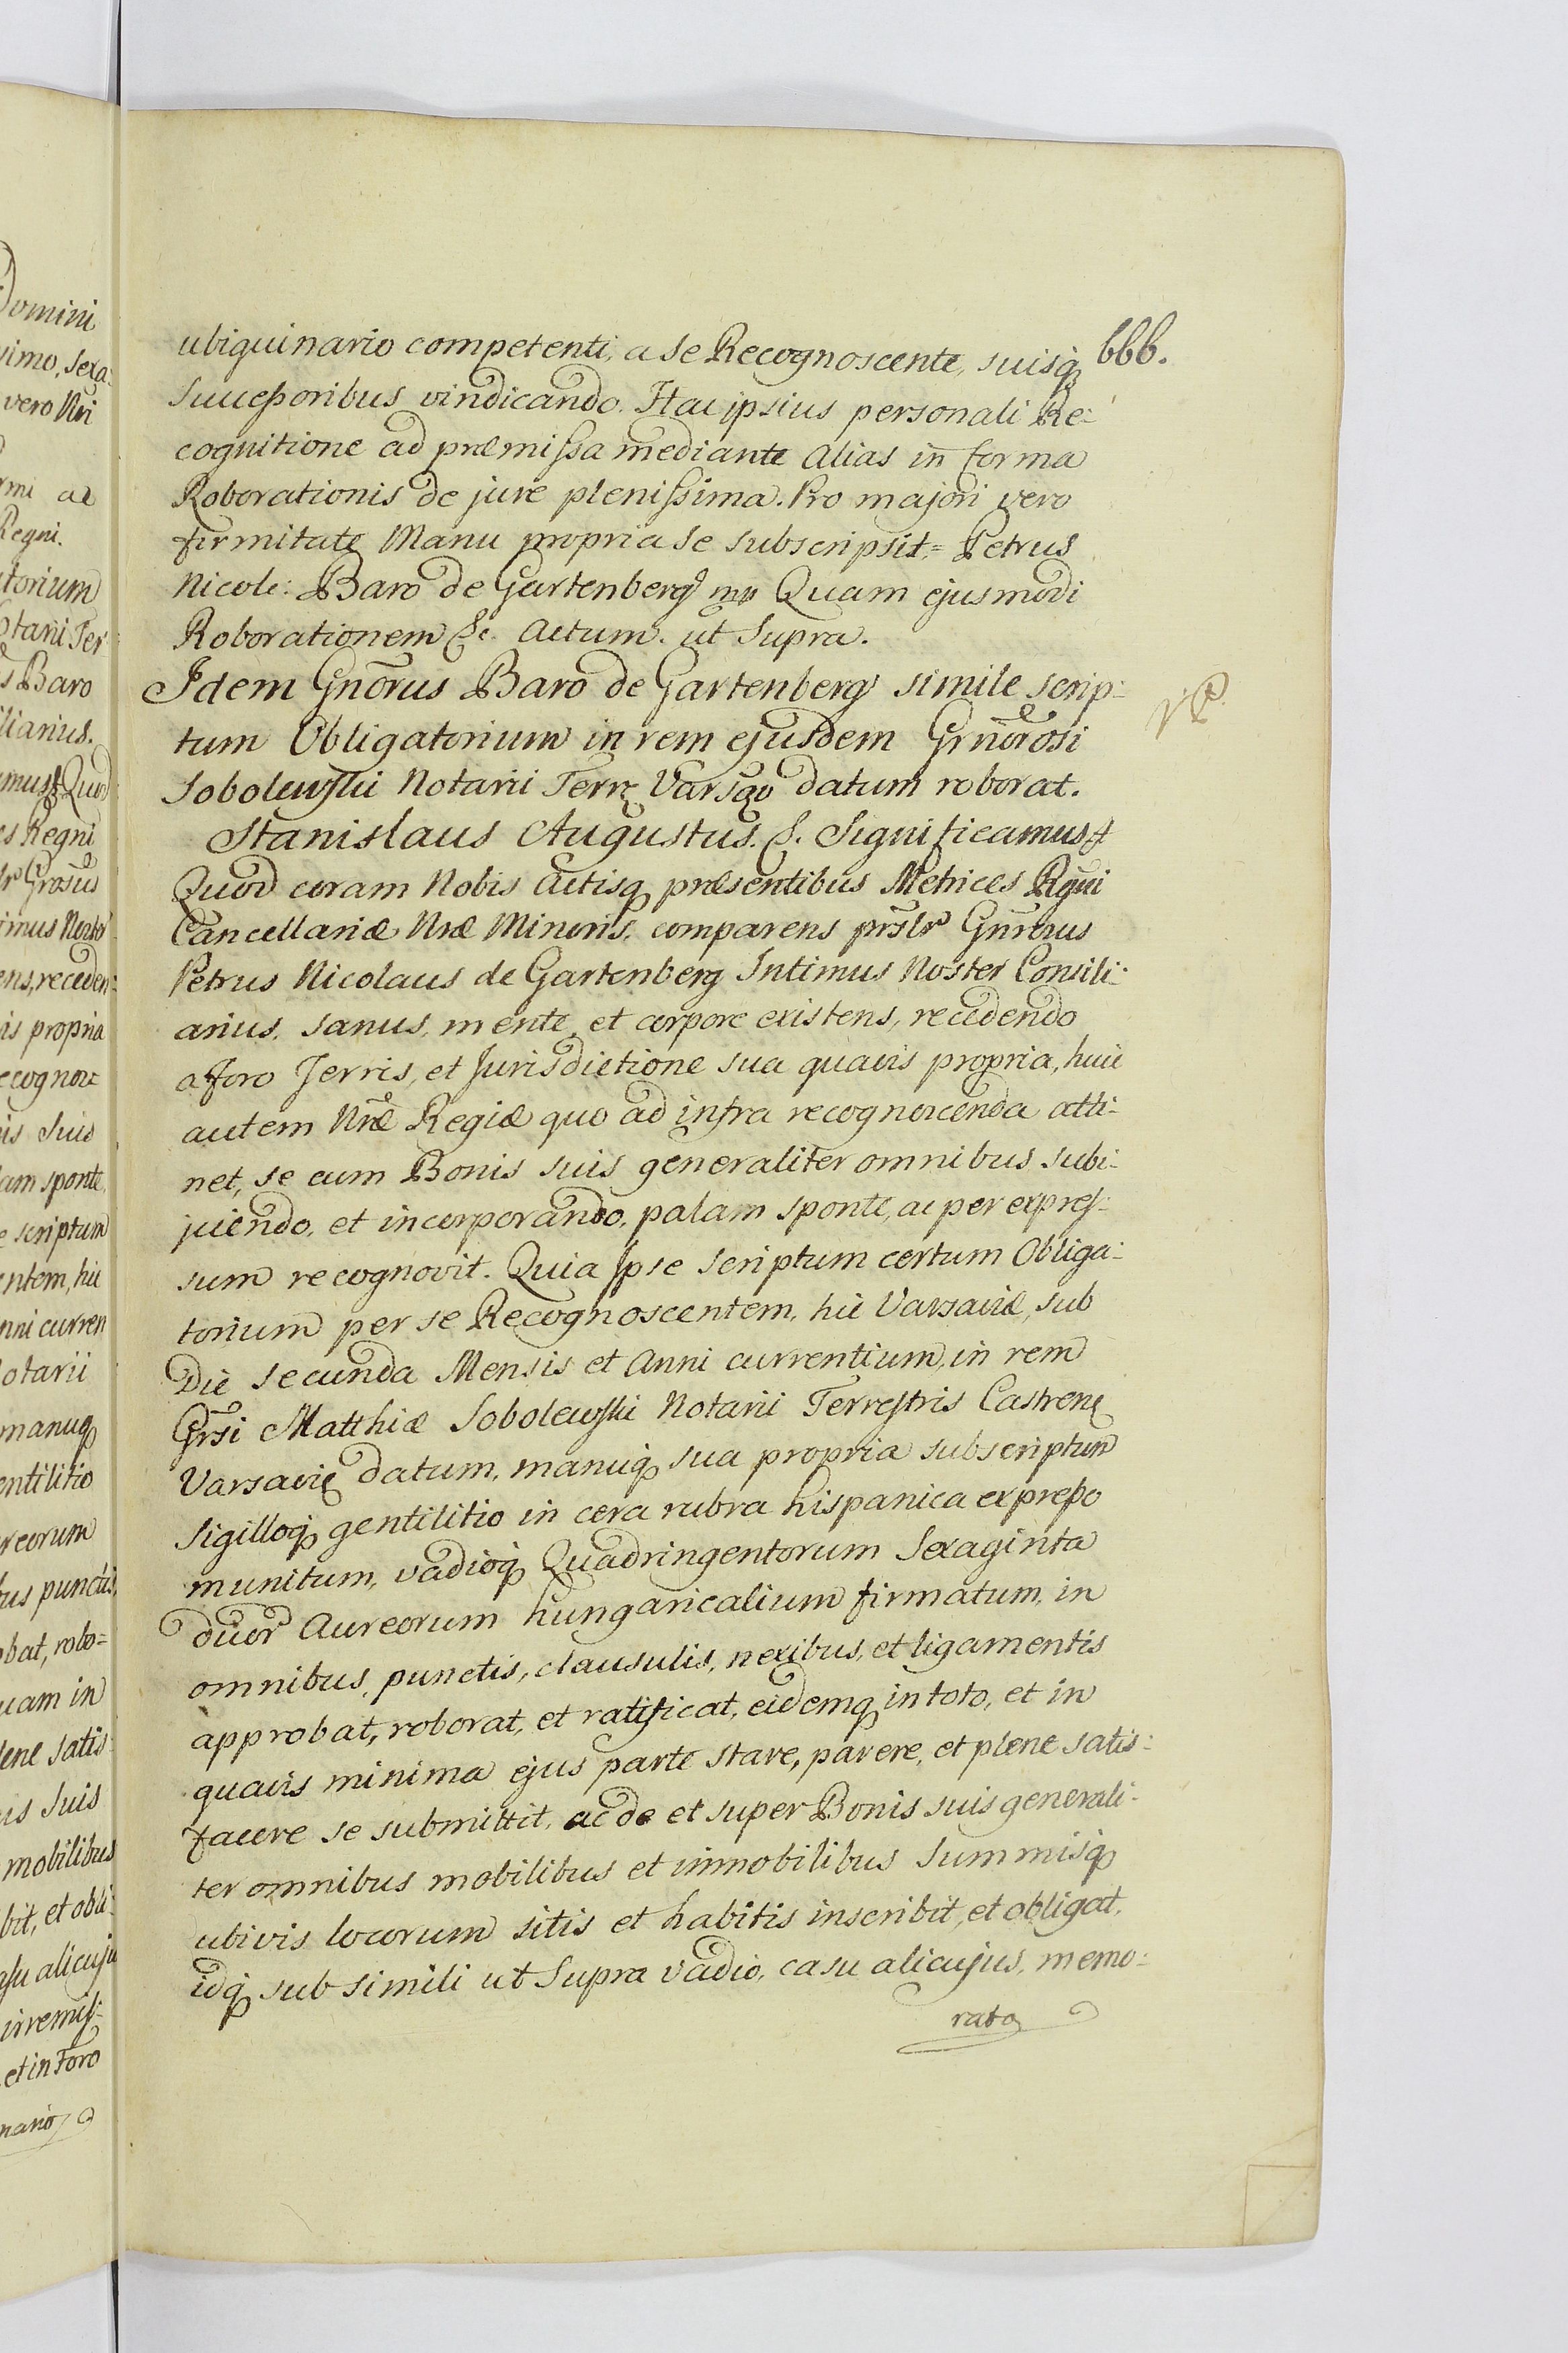 666.
ubiquinario competenti, a se Recognoscente, suisq
Successoribus vindicando. Hac ipsius personali Re-
cognitione ad præmissa mediante alias in forma
Roborationis de jure plenissima. Pro majori vero
firmitate Manu propria se subscripsit = Petrus
Nicol: Baro de Gartenberg mp Quam ejusmodi
Roborationem &c. Actum ut Supra.
Idem Gnorus Baro de Gartenberg simile scrip:
tum Obligatorium in rem ejusdem Gnorosi
Sobolewski Notarii Terrę Varsao datum roborat.
Stanislaus Augustus. &. Significamus &
Quod coram Nobis Actisq præsentibus Metrices Rgni
Cancellariæ Nræ Minoris, comparens prslr Gnrosus
Petrus Nicolaus de Gartenberg Intimus Noster Consili:
arius, sanus, mente, et corpore existens, recedendo
a foro Terris, et Jurisdictione sua quavis propria, huic
autem Nræ Regiæ quo ad infra recognoscenda atti-
net, se cum Bonis suis generaliter omnibus subi:
jiciendo, et incorporando, palam sponte, ac per expres:
sum recognovit. Quia Ipse scriptum certum Obliga:
torium per se Recognoscentem, hic Varsaviæ, sub
Die secunda Mensis et Anni currentium, in rem
Grsi Matthiæ Sobolewski Notarii Terrestris Castrenę
Varsavię datum, manuq sua propria subscriptum
Sigilloq gentilitio in cera rubra hispanica expresso
munitum, vadioq Quadringentorum Sexaginta
duor Aureorum hungaricalium firmatum, in
omnibus, punctis, clausulis, nexibus, et ligamentis
approbat, roborat, et ratificat, eidemq in toto, et in
quavis minima ejus parte stare, parere, et plene satis:
facere se submittit, ac de et super Bonis suis generali-
ter omnibus mobilibus et immobilibus Summisq
ubivis locorum sitis et habitis inscribit, et obligat,
idq sub simili ut Supra vadio, casu alicujus, memo:
rato
Domini
vimo, sexa:
vero Nri
rmi ac
Regni.
torium
otarii Ter
s Baro
liarius.
amus & Quod
es Regni
lr Grosus
imus Noster
ens, receden:
is propria
ecognos:
is Suis
lam sponte,
e scriptum
entem, hic
nni curren
otarii
manuq
entilitio
reorum
bus punctis,
obat, robo=
uam in
lene satis:
is Suis
mobilibus
bit, et obli:
asu alicuju
irremiss:
et in Foro
nario